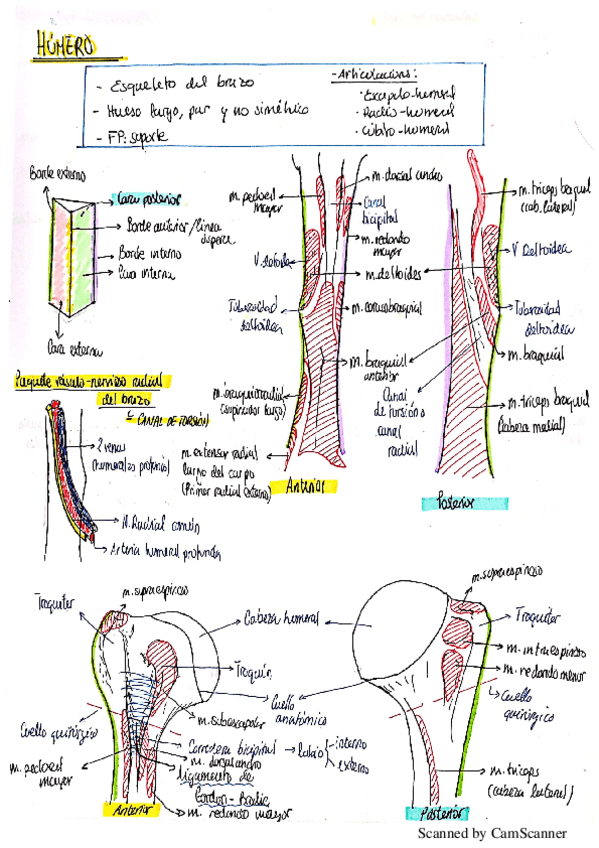 HÚMERO
- Esqueleto del brazo
- Hueso largo, par y no simétrico
- FP: soporte
- Articulaciones:
· Escápulo-humeral
· Radio-humeral
· Cúbito-humeral
Borde externo
Cara posterior
Borde anterior/línea
áspera
Borde interno
Cara interna
Cara externa
Paquete vásculo-nervioso radial
del brazo
CANAL DE TORSIÓN
2 venas
(humerales profundas)
N. Radial común
Arteria humeral profunda
m. pectoral
mayor
V. deltoidea
Tuberosidad
deltoidea
m. braquiorradial
(supinador largo)
m. extensor radial
largo del carpo
(Primer radial externo)
m. dorsal ancho
Canal
bicipital
m. redondo
mayor
m. deltoides
m. coracobraquial
m. braquial
anterior
Canal
de torsión o
canal
radial
Anterior
m. tríceps braquial
(cab. lateral)
V Deltoidea
Tuberosidad
deltoidea
m. braquial
m. tríceps braquial
(cabeza medial)
Posterior
Troquiter
m. supraespinoso
Cabeza humeral
Troquín
Cuello
anatómico
Cuello quirúrgico
m. subescapular
Corredera bicipital → labio
interno
externo
m. dorsal ancho
ligamento de
Gordon-Brodie
m. redondo mayor
m. pectoral
mayor
Anterior
m. supraespinoso
Troquiter
m. infraespinoso
m. redondo menor
Cuello
quirúrgico
m. tríceps
(cabeza lateral)
Posterior
Scanned by CamScanner